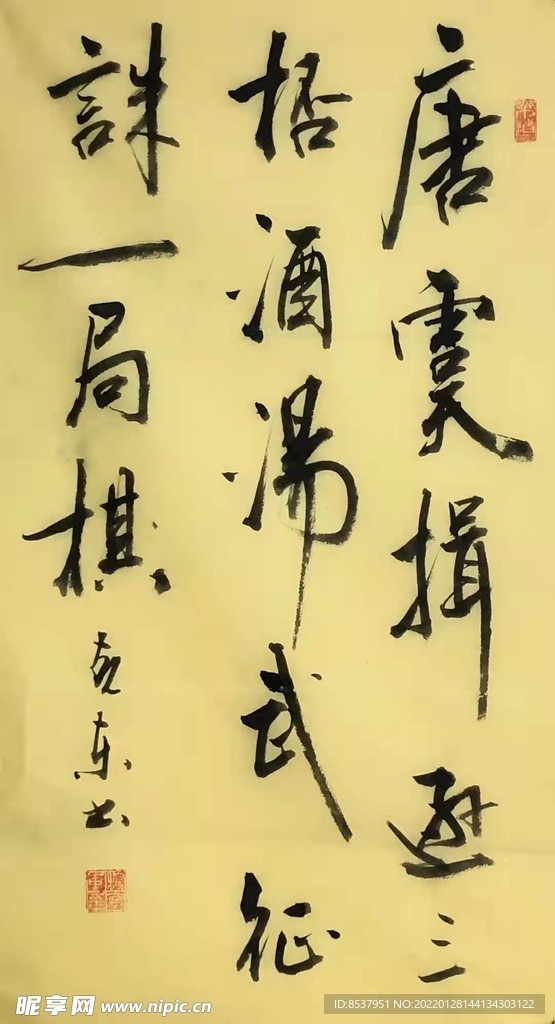 唐虞揖逊三
桮酒湯武征
誅一局棋
克东书
昵享网 www.nipic.cn
ID:8537951 NO:20220128144134303122